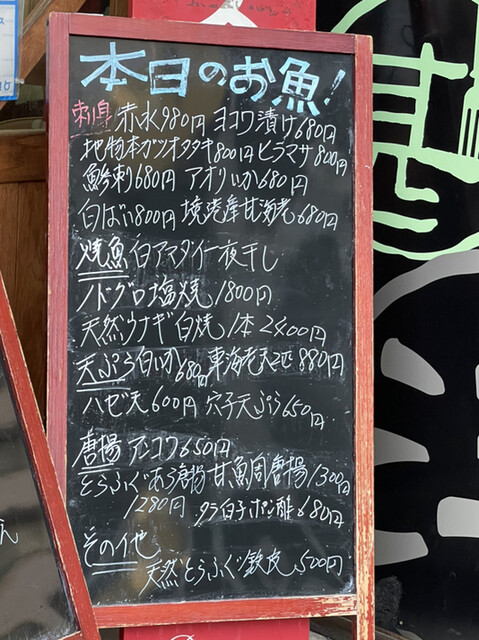 本日のお魚!
刺身 赤水980円 ヨコワ漬け680円
地物本ガツオタタキ800円 ヒラマサ800円
鯵刺680円 アオリいか680円
白ばい800円 境港産甘海老680円
焼魚 白アマダイ一夜干し
ノドグロ塩焼 1800円
天然ウナギ白焼 1本2400円
天ぷら 白いか680円 車海老天2匹880円
ハゼ天600円 穴子天ぷら650円
唐揚 アンコウ650円
とらふぐあら唐揚 甘魚周唐揚1300円
1280円 タラ白子ポン酢680円
その他
天然とらふぐ鉄皮500円